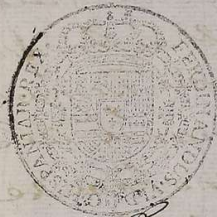 FERDINANDVS D G HISPANIAR REX